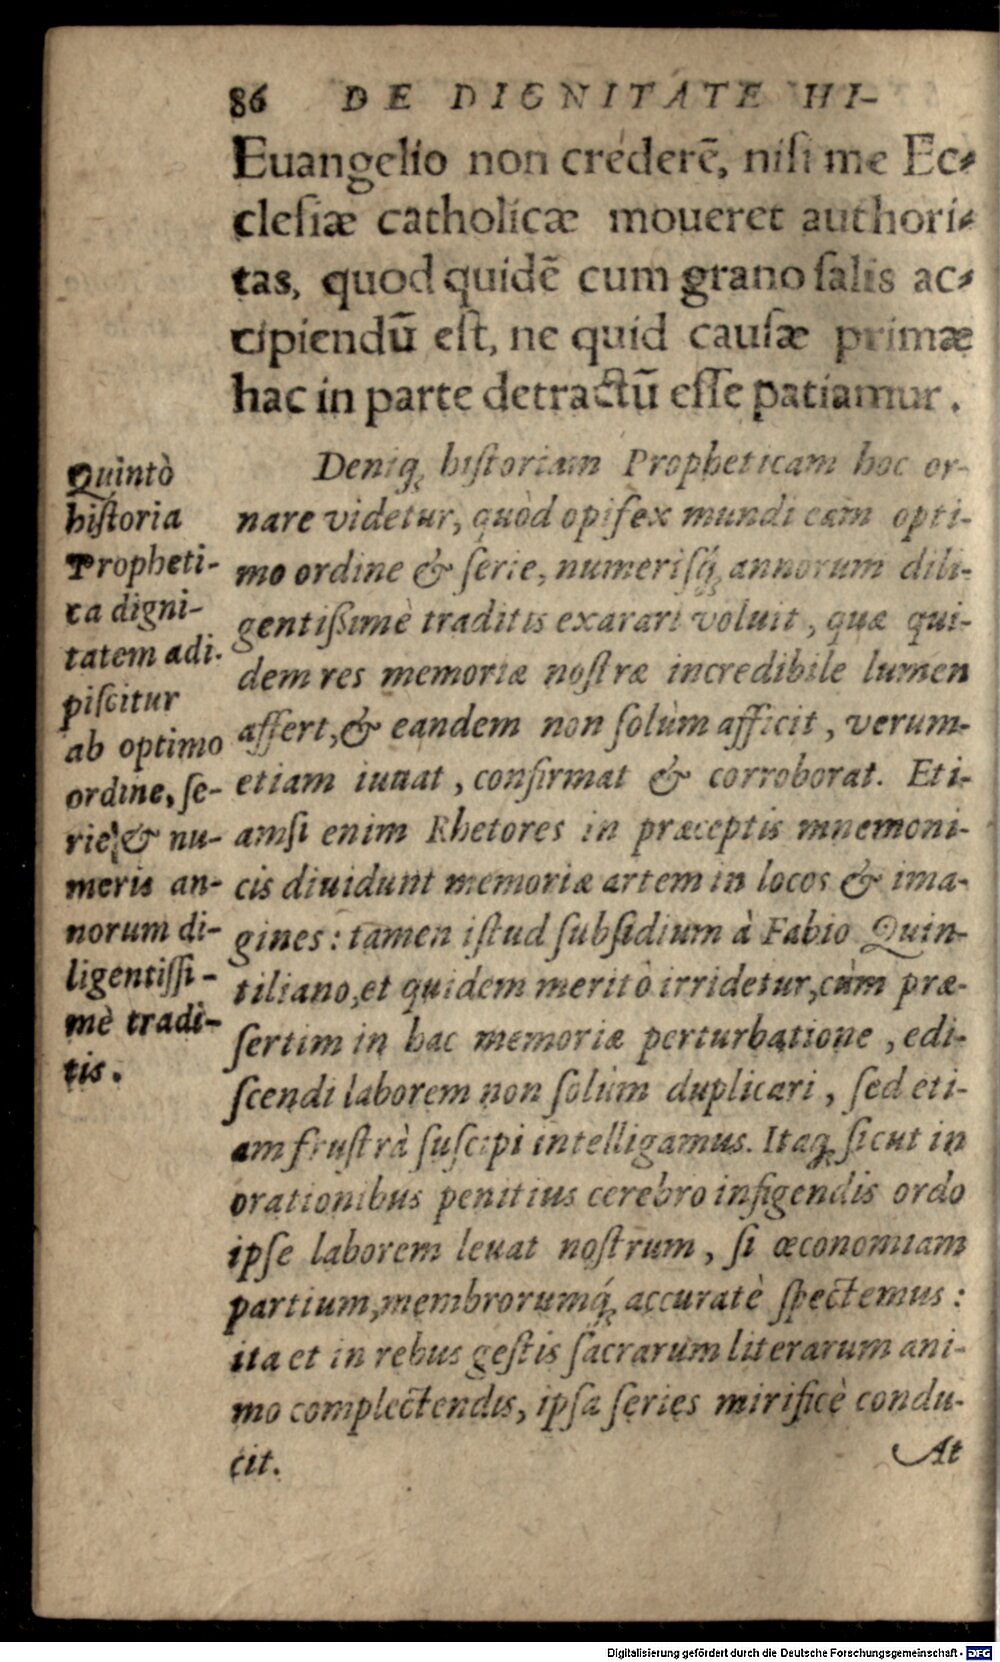 86 DE DIGNITATE HI-
Euangelio non crederē, niſi me Ec-
cleſiæ catholicæ moueret authori-
tas, quod quidē cum grano ſalis ac-
cipiendū eſt, ne quid cauſæ primæ
hac in parte detractū eſſe patiamur.
Quintò
hiſtoria
Propheti-
ca digni-
tatem adi-
piſcitur
ab optimo
ordine, ſe-
rie, & nu-
meris an-
norum di-
ligentiſſi-
mè tradi-
tis.
Deniq; hiſtoriam Propheticam hoc or-
nare videtur, quòd opifex mundi eam opti-
mo ordine & ſerie, numeriſq́; annorum dili-
gentißimè traditis exarari voluit, quæ qui-
dem res memoriæ noſtræ incredibile lumen
affert, & eandem non ſolùm afficit, verum-
etiam iuuat, confirmat & corroborat. Eti-
amſi enim Rhetores in præceptis mnemoni-
cis diuidunt memoriæ artem in locos & ima-
gines: tamen iſtud ſubſidium à Fabio Quin-
tiliano, et quidem meritò irridetur, cùm præ-
ſertim in hac memoriæ perturbatione, edi-
ſcendi laborem non ſolùm duplicari, ſed eti-
am fruſtrà ſuſcipi intelligamus. Itaq; ſicut in
orationibus penitius cerebro infigendis ordo
ipſe laborem leuat noſtrum, ſi œconomiam
partium, membrorumq́; accuratè ſpectemus:
ita et in rebus geſtis ſacrarum literarum ani-
mo complectendis, ipſa ſeries mirificè condu-
cit.
At
Digitalisierung gefördert durch die Deutsche Forschungsgemeinschaft - DFG